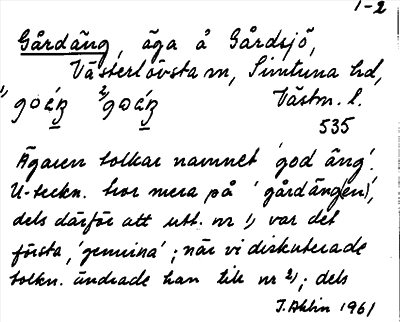 1-2
Gårdäng, äga å Gårdsjö,
Västerlövsta sn, Simtuna hd,
1) 2) Västm. l.
535
Ägaren tolkar namnet 'god äng'.
U-teckn. tror mera på 'gårdäng(en)',
dels därför att utt. nr 1) var det
första, 'genuina'; när vi diskuterade
tolkn. ändrade han till nr 2); dels
J. Ahlin 1961